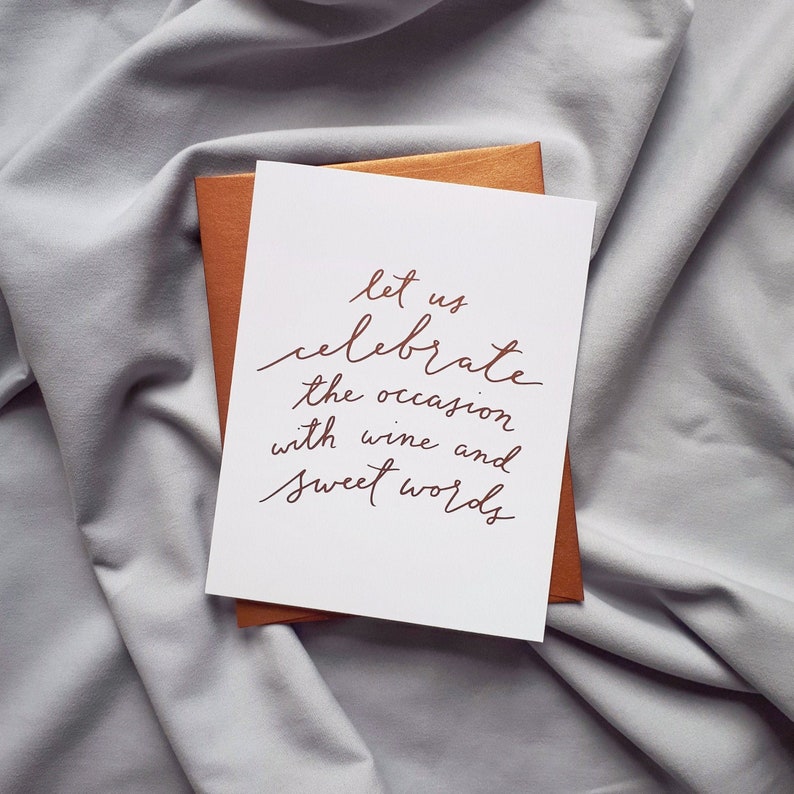 let us
celebrate
the occasion
with wine and
sweet words